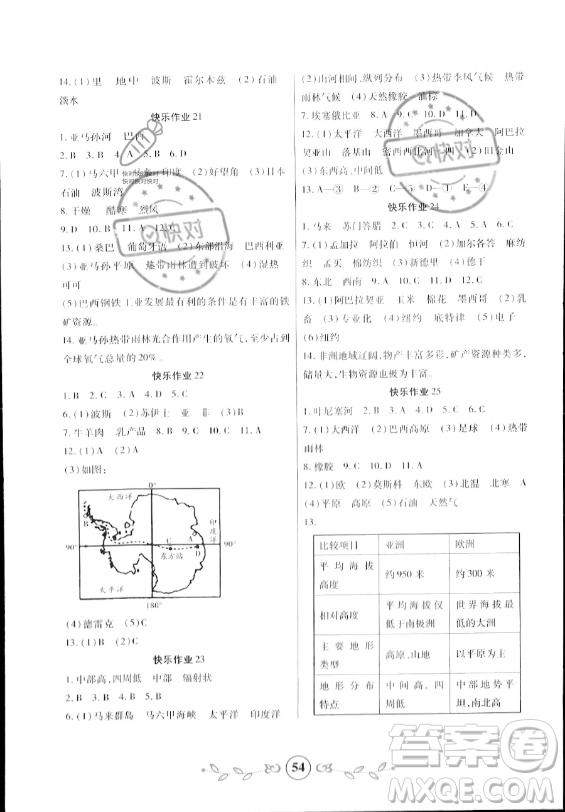 14.(1)里 地中 波斯 霍尔木兹 (2)石油
淡水
快乐作业 21
1.亚马孙河 巴西
2.B 3.B 4.D 5.C 6.A
7.(1)马六甲 印度 (2)好望角 (3)日本
石油 波斯湾
8.干燥 酷寒 烈风
9.D 10.B 11.A 12.C
13.(1)桑巴 葡萄牙语 (2)东部沿海 巴西利亚
(3)亚马孙平原 热带雨林遭到破坏 (4)湿热
可可
(5)巴西钢铁工业发展最有利的条件是有丰富的铁
矿资源。
14.亚马孙热带雨林光合作用产生的氧气,至少占到
全球氧气总量的20%。
快乐作业 22
1.B 2.C 3.C 4.D 5.C
6.(1)波斯 (2)苏伊士 亚 非
7.牛羊肉 乳产品 8.C 9.B 10.C 11.C
12.(1)A (2)A
(3)如图:
0°
大西洋
印度洋
90°
90°
C
A
D
东方站
太平洋
180°
(4)德雷克
13.(1)B (2)C
快乐作业 23
1.中部高,四周低 中部 辐射状
2.B 3.B 4.B 5.D
6.(1)马来群岛 马六甲海峡 太平洋 印度洋
(2)山河相间,纵列分布 (3)热带季风气候 热带
雨林气候 (4)天然橡胶 油棕
7.埃塞俄比亚 8.A 9.C 10.A 11.C
12.(1)太平洋 大西洋 墨西哥 加拿大 阿巴拉
契亚山 落基山 密西西比 五大湖 (2)旧金山
西高、中低
13.A—③ B—① C—② D—④
快乐作业 24
1.马来 苏门答腊 2.C 3.D 4.C 5.B 6.C
7.(1)孟加拉 阿拉伯 恒河 (2)加尔各答 麻纺
织 孟买 棉纺织 (3)新德里 (4)C
8.东北 西南 9.B 10.D 11.D 12.C
13.(1)阿巴拉契亚 玉米 棉花 墨西哥 (2)
畜牧 (3)专业化 (4)纽约 底特律 (5)电子
(6)纽约
14.非洲地域辽阔,物产丰富多彩,矿产资源种类多,
储量大,生物资源也极为丰富。
快乐作业 25
1.叶尼塞河 2.C 3.B 4.A 5.D 6.B
7.(1)大西洋 (2)巴西高原 (3)足球 (4)热带
雨林
8.橡胶 9.C 10.C 11.A
12.(1)欧 (2)莫斯科 东欧 (3)北温 北寒
(4)平原 高原 (5)石油 天然气
13.
比较项目 亚洲 欧洲
平均海拔高度 约950米 约300米
相对高度 平均海拔仅低于南极洲 世界海拔最低的大洲
主要地形类型 高原、山地 以平原为主
地形分布特点 中间高、四周低 中部地势平坦,南北高
54
快对
快对
答案卷
MXQE.COM